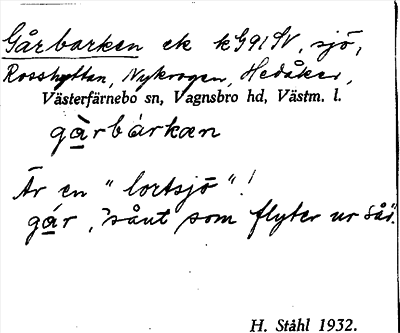 Gårbarken ek kG91SV, sjö,
Rosshyttan, Nykrogen, Hedåker,
Västerfärnebo sn, Vagnsbro hd, Västm. l.
gàrbárkæn
Är en "lortsjö"!
gár, "sånt som flyter ur sår".
H. Ståhl 1932.